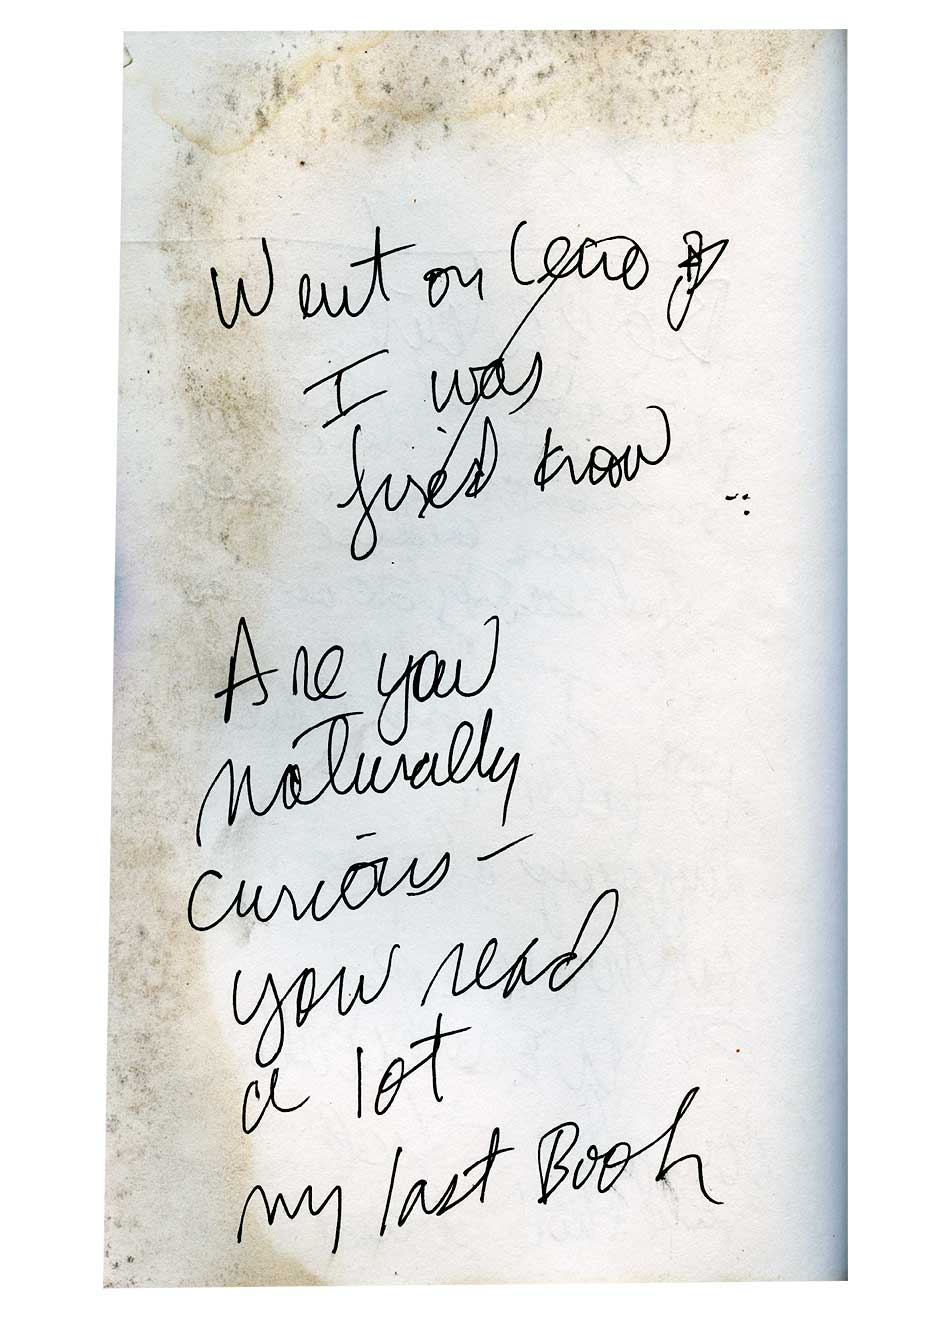 Went on Leno &
I was
fired know
Are you
naturally
curious –
you read
a lot
my last Book